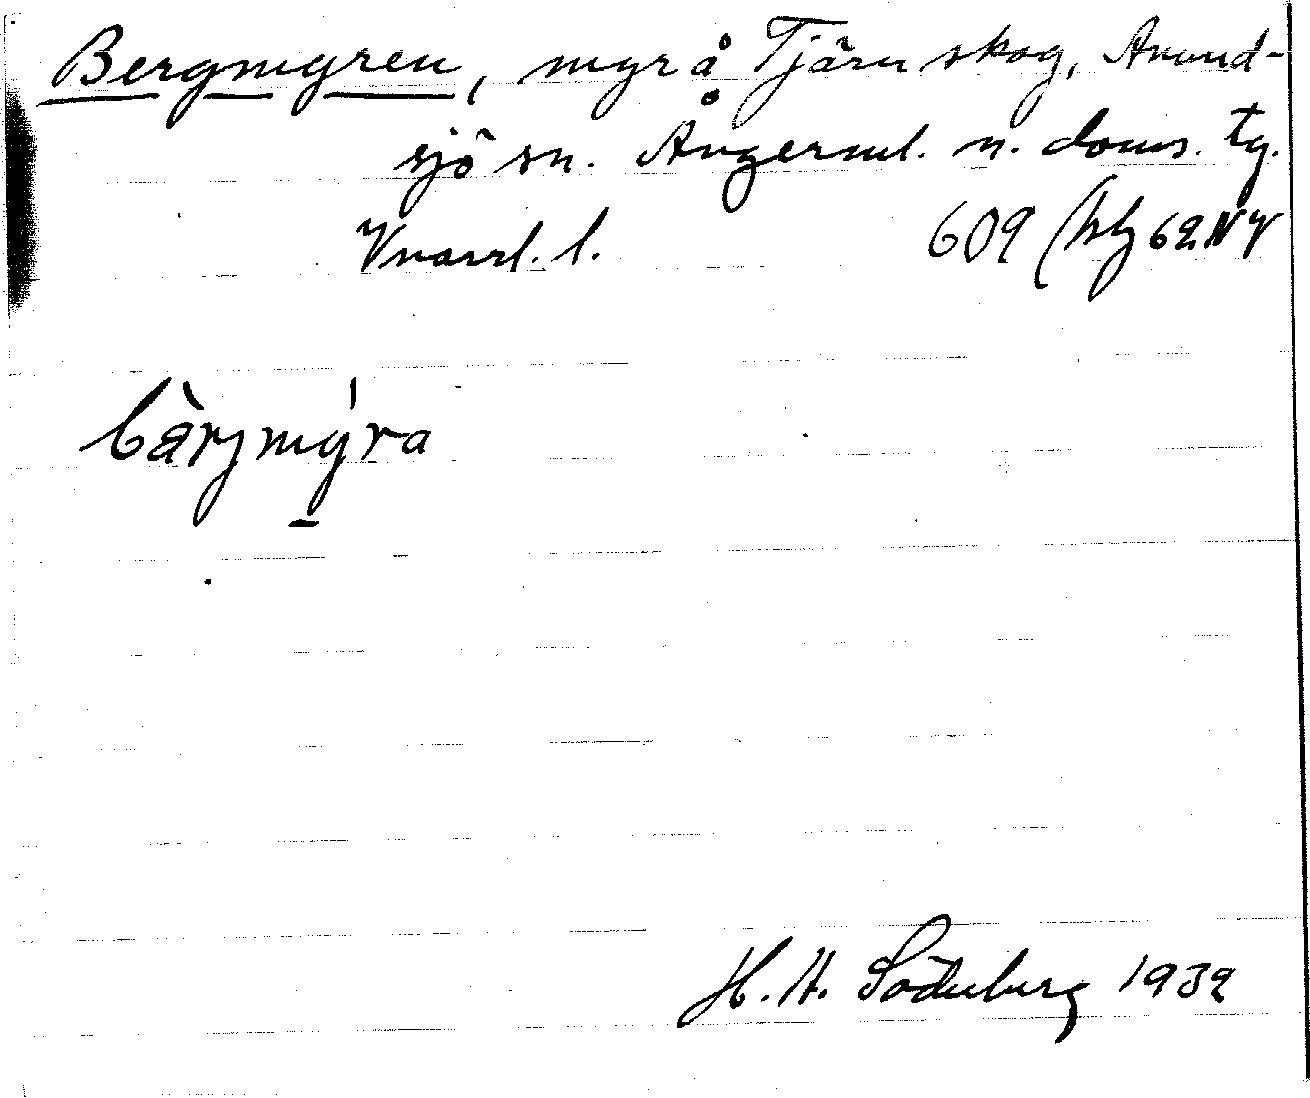 Bergmyren, myr å Tjärn skog, Anund-
sjö sn. Ångerml. n. doms. tg.
Vnorrl. l. 609 (kbl 62NV
bärjmýra
H. A. Söderberg 1932